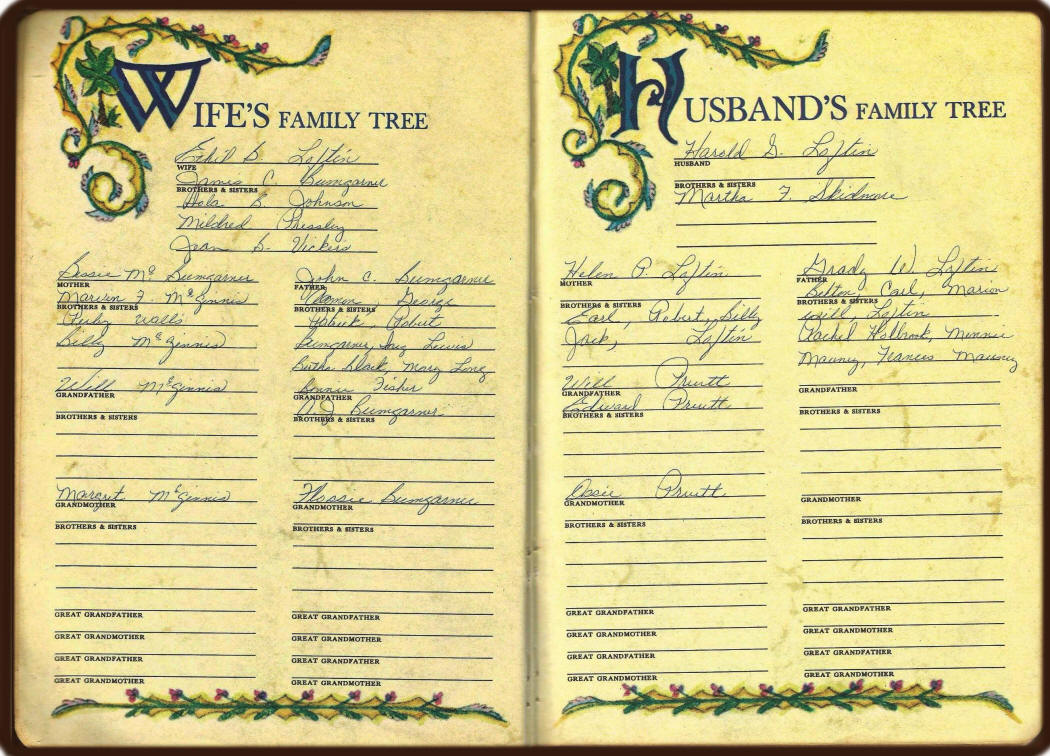 WIFE'S FAMILY TREE
Ethil B. Loftin
WIFE
James C. Bumgarner
BROTHERS & SISTERS
Hola B. Johnson
Mildred Pressley
Jean B. Vickers
Bessie Mc Bumgarner
MOTHER
Marvin F. McGinnis
BROTHERS & SISTERS
Walls
Billy McGinnis
Will McGinnis
GRANDFATHER
BROTHERS & SISTERS
Margret McGinnis
GRANDMOTHER
BROTHERS & SISTERS
GREAT GRANDFATHER
GREAT GRANDMOTHER
GREAT GRANDFATHER
GREAT GRANDMOTHER
John C. Bumgarner
FATHER
George
BROTHERS & SISTERS
Robert
Bumgarner, Lewis
Black, Mary Long
Bonnie Fisher
GRANDFATHER
A.J. Bumgarner
BROTHERS & SISTERS
Flossie Bumgarner
GRANDMOTHER
BROTHERS & SISTERS
GREAT GRANDFATHER
GREAT GRANDMOTHER
GREAT GRANDFATHER
GREAT GRANDMOTHER
HUSBAND'S FAMILY TREE
Harold G. Loftin
HUSBAND
BROTHERS & SISTERS
Martha F. Skidmore
Helen P. Loftin
MOTHER
BROTHERS & SISTERS
Earl, Robert, Billy
Jack, Loftin
Will Pruitt
GRANDFATHER
Edward Pruitt
BROTHERS & SISTERS
Ossie Pruitt
GRANDMOTHER
BROTHERS & SISTERS
GREAT GRANDFATHER
GREAT GRANDMOTHER
GREAT GRANDFATHER
GREAT GRANDMOTHER
Grady W. Loftin
FATHER
Belton Carl, Marion
BROTHERS & SISTERS
Will, Loftin
Rachel Holbrook, Minnie
Mauney, Frances Mauney
GRANDFATHER
BROTHERS & SISTERS
GRANDMOTHER
BROTHERS & SISTERS
GREAT GRANDFATHER
GREAT GRANDMOTHER
GREAT GRANDFATHER
GREAT GRANDMOTHER